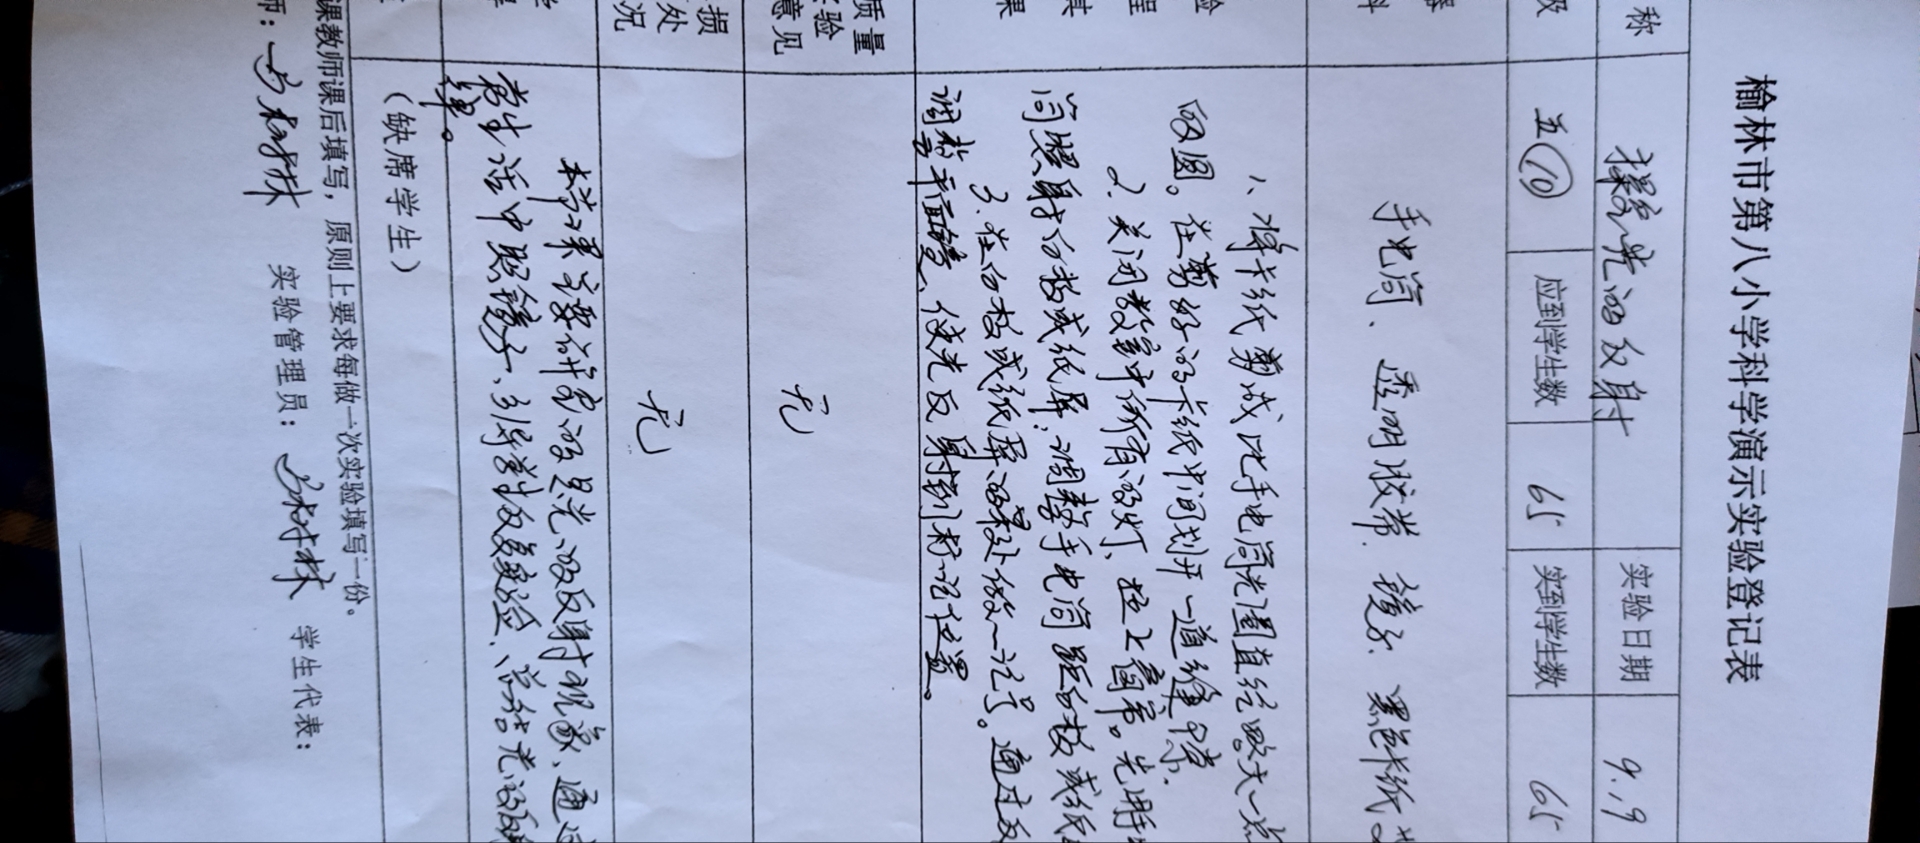 榆林市第八小学科学演示实验登记表
称 探究光的反射 实验日期 9.19
级 五(10) 应到学生数 65 实到学生数 65
器 手电筒、透明胶带、镜子、黑色卡纸
料
验 1、将卡纸剪成比手电筒光圈直径略大一点
程 的圆。在剪好的卡纸中间划开一道缝
其 2、关闭教室中所有的灯、拉上窗帘。先用手
果 筒照射白板或纸屏,调整手电筒距白板或纸
3、在白板或纸屏的某处做一记号。通过
调整平面镜、使光反射到标记位置。
质量
验 无
意见
损
处 无
况
本节课主要研究的是光的反射现象、通过
常生活中照镜子、引导学生反复实验、总结光的
律。
(缺席学生)
课教师课后填写,原则上要求每做一次实验填写一份。
师: 实验管理员: 学生代表: